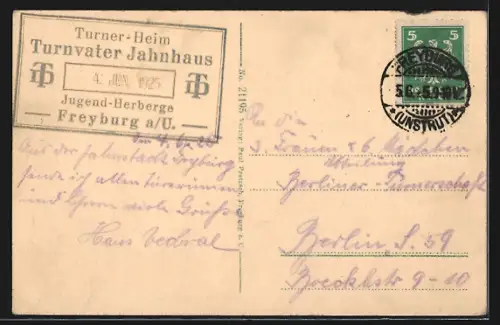 Turner-Heim
Turnvater Jahnhaus
4. JUN. 1925
Jugend-Herberge
Freyburg a/U.
Aus der Jahnstadt Freyburg
sende ich allen Turnerinnen
und Ihnen viele Grüße
Hans
No. 21105
5 5
FREYBURG
5.6.25.9-10V.
*(UNSTRUT)*
An die
3. Frauen & 6. Mädchen
Abteilung
Berliner Turnerschaft
Berlin S. 59
Boeckhstr 9-10